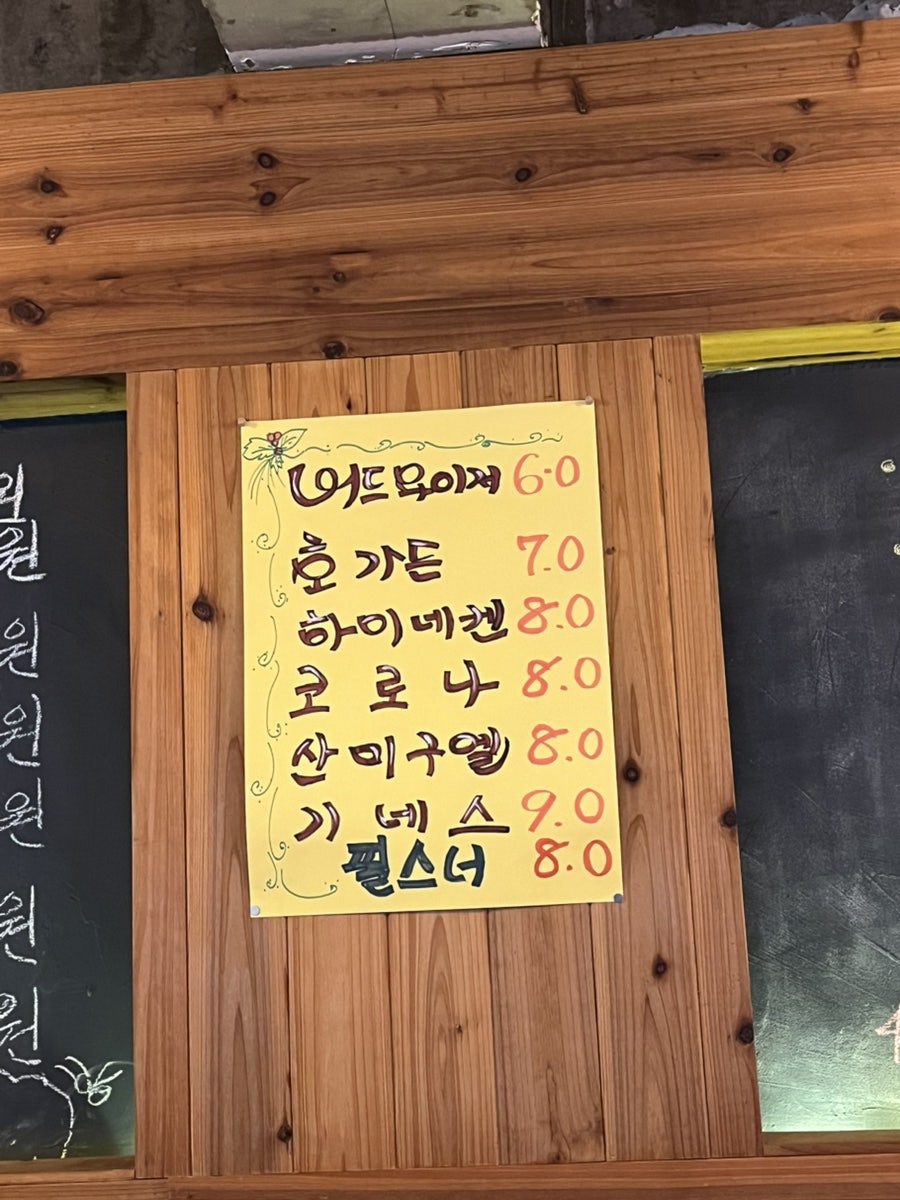 버드와이저 6.0
호가든 7.0
하이네켄 8.0
코로나 8.0
산미구엘 8.0
기네스 9.0
필스너 8.0
원
원
원
원
원
원